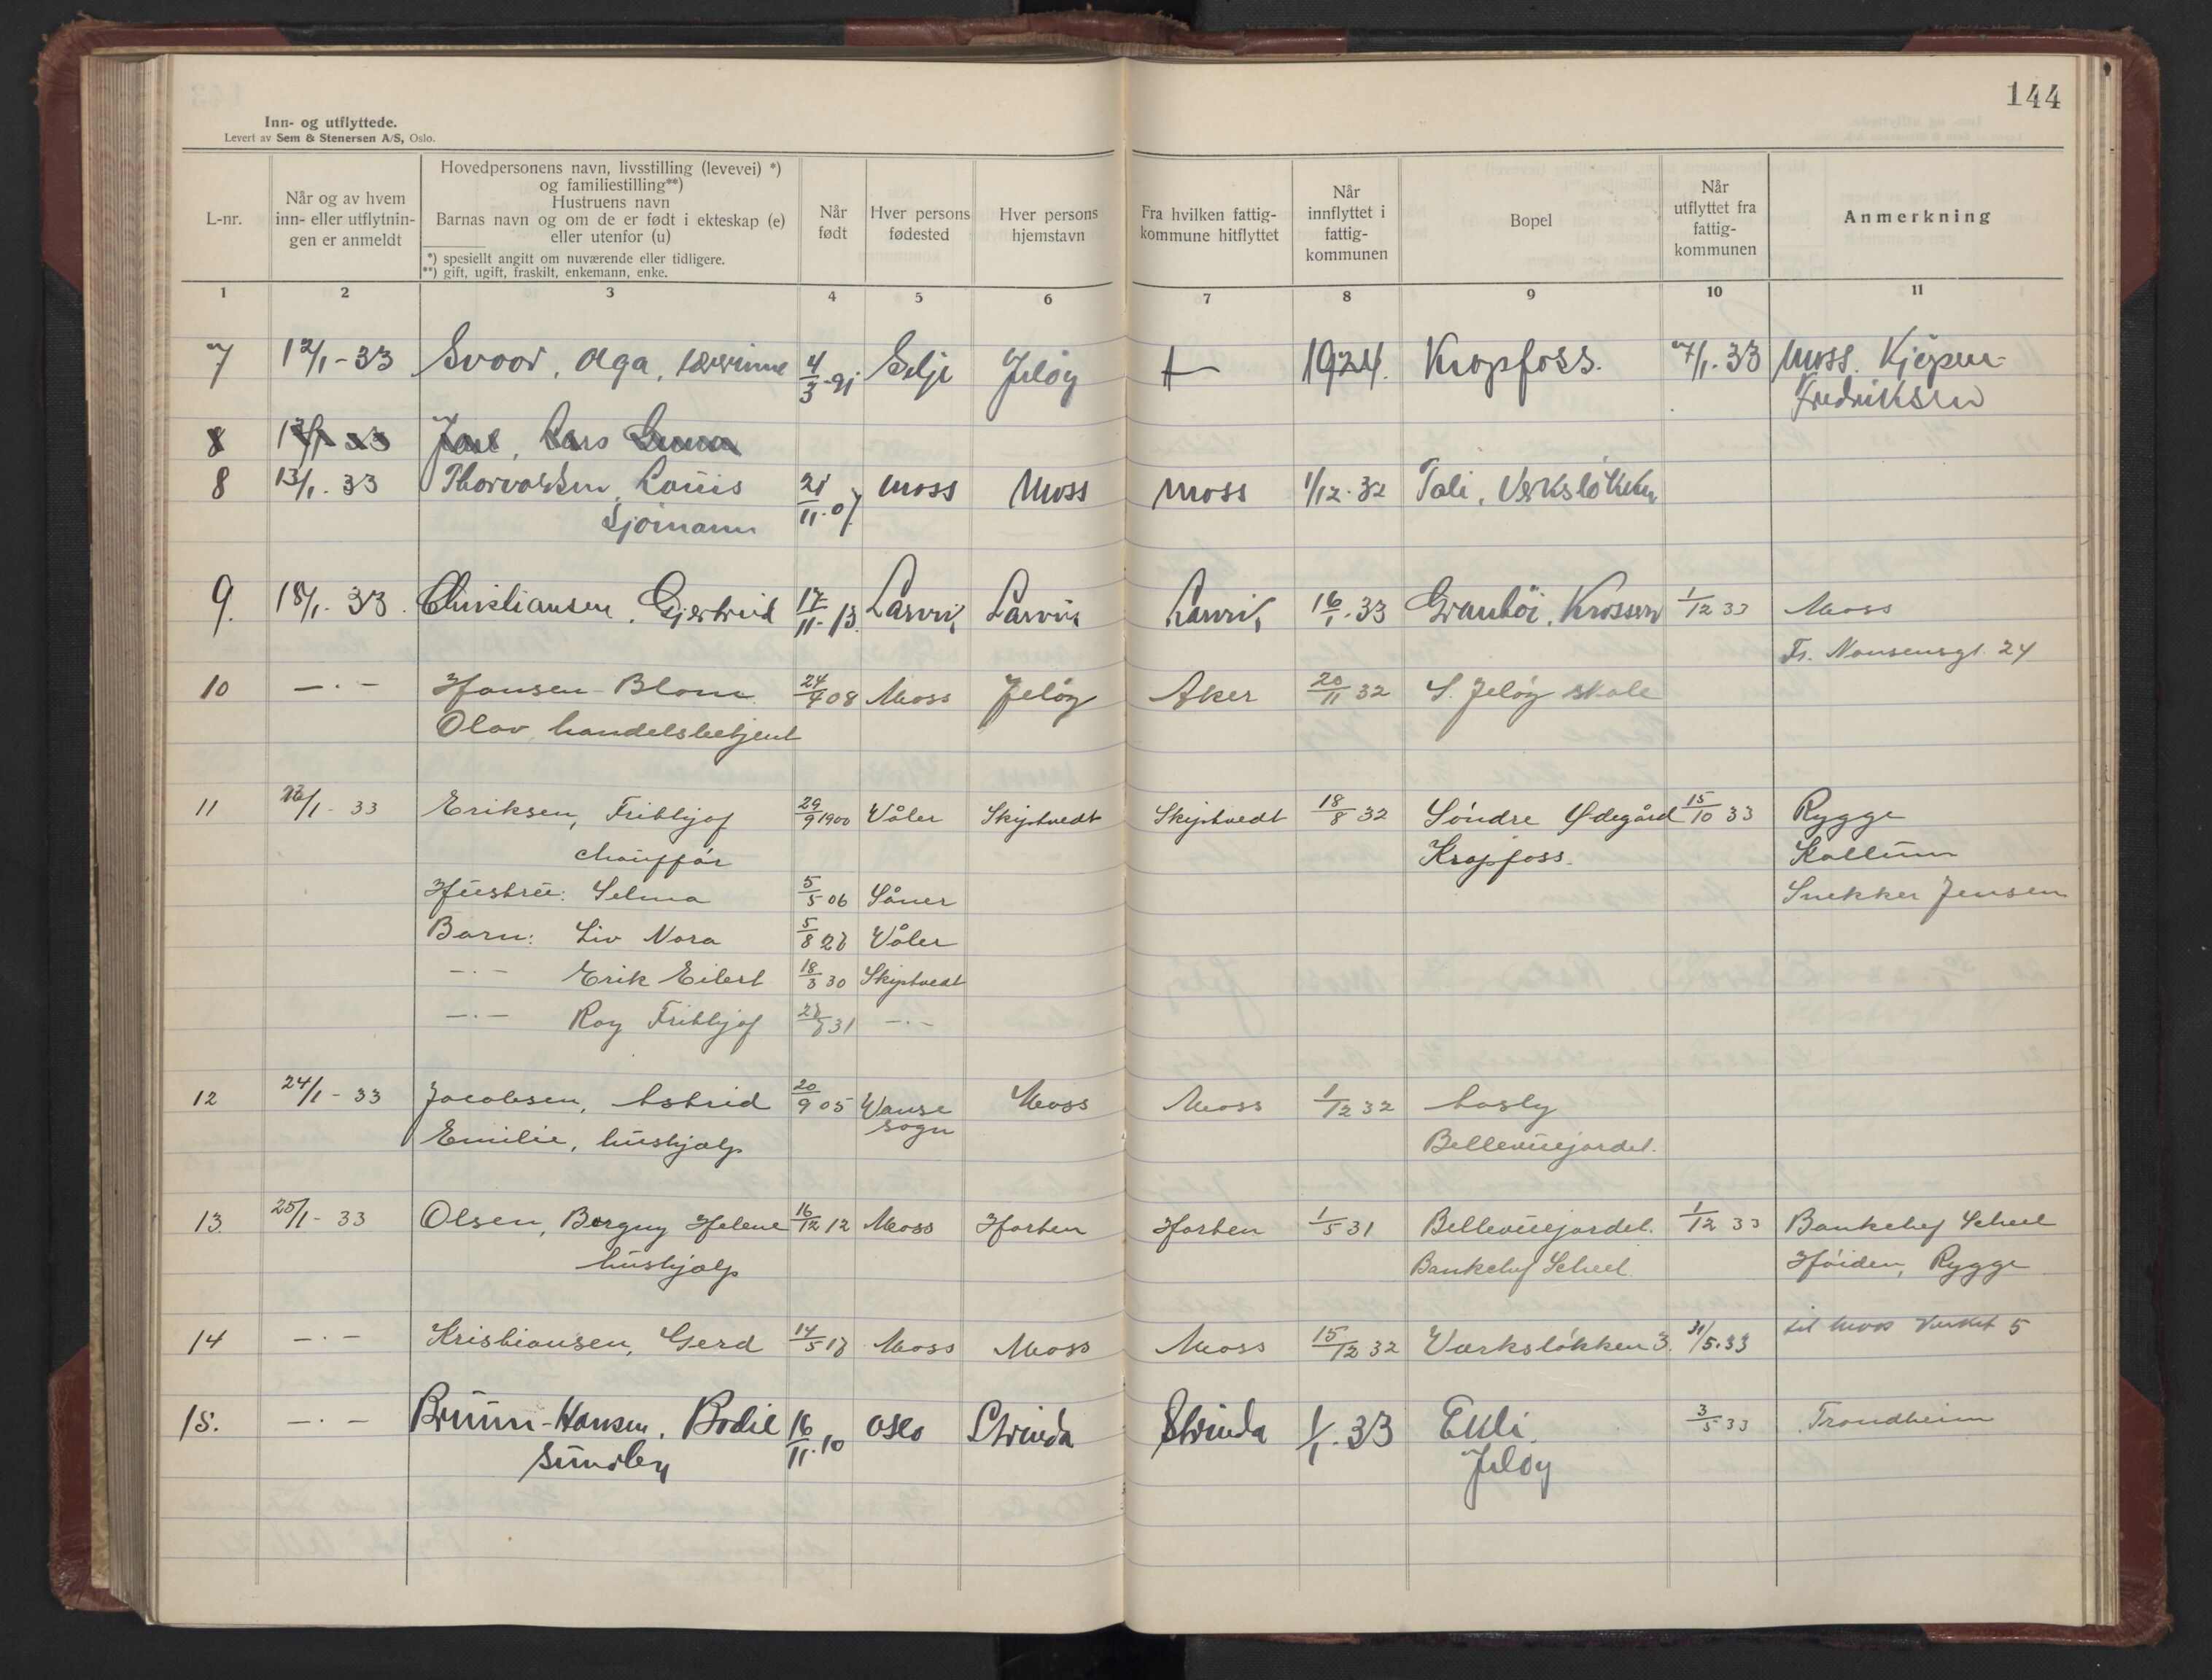 144
Inn- og utflyttede.
Levert av Sem & Stenersen A/S, Oslo.
L-nr.
Når og av hvem
inn- eller utflytnin-
gen er anmeldt
Hovedpersonens navn, livsstilling (levevei) *)
og familiestilling**)
Hustruens navn
Barnas navn og om de er født i ekteskap (e)
eller utenfor (u)
*) spesiellt angitt om nuværende eller tidligere.
**) gift, ugift, fraskilt, enkemann, enke.
Når
født
Hver persons
fødested
Hver persons
hjemstavn
Fra hvilken fattig-
kommune hitflyttet
Når
innflyttet i
fattig-
kommunen
Bopel
Når
utflyttet fra
fattig-
kommunen
Anmerkning
1 2 3 4 5 6 7 8 9 10 11
7 12/1-33 Svoor, Olga, lærerinne 4/3-91 Selje Jeløy 1924. Kropfoss. 7/1.33 Moss. Kjøpm-
Fredriksen
8 13/1 33 Lars
8 13/1.33 Thorvaldsen, Louis 21/11.07 Moss Moss Moss 1/12.32 Tali, Verksløkken
Sjømann
9. 18/1.33. Christiansen, Gjertrud 17/11-13 Larvik Larvik Larvik 16/1.33 Granhöi, Krossern 1/12 33 Moss
Fr. Nansensgt. 24
10 —.— Hansen-Blom 24/4 08 Moss Jeløy Aker 20/11 32 S. Jeløy skole
Olav, handelsbetjent
11 23/1-33 Eriksen, Frithjof 29/9 1900 Våler Skiptvedt Skiptvedt 18/8 32 Söndre Ødegård 15/10 33 Rygge
chauffør Kropfoss. Kallum
Hustru: Selma 5/5 06 Såner Snekker Jensen
Barn: Liv Nora 5/8 28 Våler
—.— Erik Eilert 18/3 30 Skiptvedt
—.— Roy Frithjof 28/8 31 —.—
12 24/1-33 Jacobsen, Astrid 20/9 05 Vanse Moss Moss 1/12 32 Aasly
sogn
Emilie, hushjælp Bellevuejordet.
13. 25/1-33 Olsen, Borgny Helene 16/12 12 Moss Horten Horten 1/5 31 Bellevuejordet. 1/12 33 Bankchef Scheel
hushjælp Bankchef Scheel. Høiden, Rygge
14 —.— Kristiansen, Gerd 14/5 18 Moss Moss Moss 15/12 32 Værksløkken 3. 31/5.33 til Moss Verket 5
15. —.— Bruun-Hansen, Bodil 16/11.10 Oslo Strinda Strinda 1/1.33 Ekli. 3/5 33 Trondheim
Sundby Jeløy